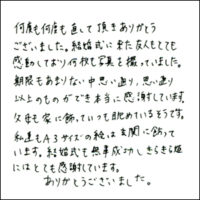 何度も何度も直して頂きありがとう
ございました。結婚式に来た友人もとても
感動しており何枚も写真を撮っていました。
期限もあまりない中思い通り、思い通り
以上のものができ本当に感謝しています。
父母も家に飾っていつも眺めているそうです。
私達もA3サイズの絵は玄関に飾って
います。結婚式も無事成功しきらきら様
にはとても感謝しています。
ありがとうございました。